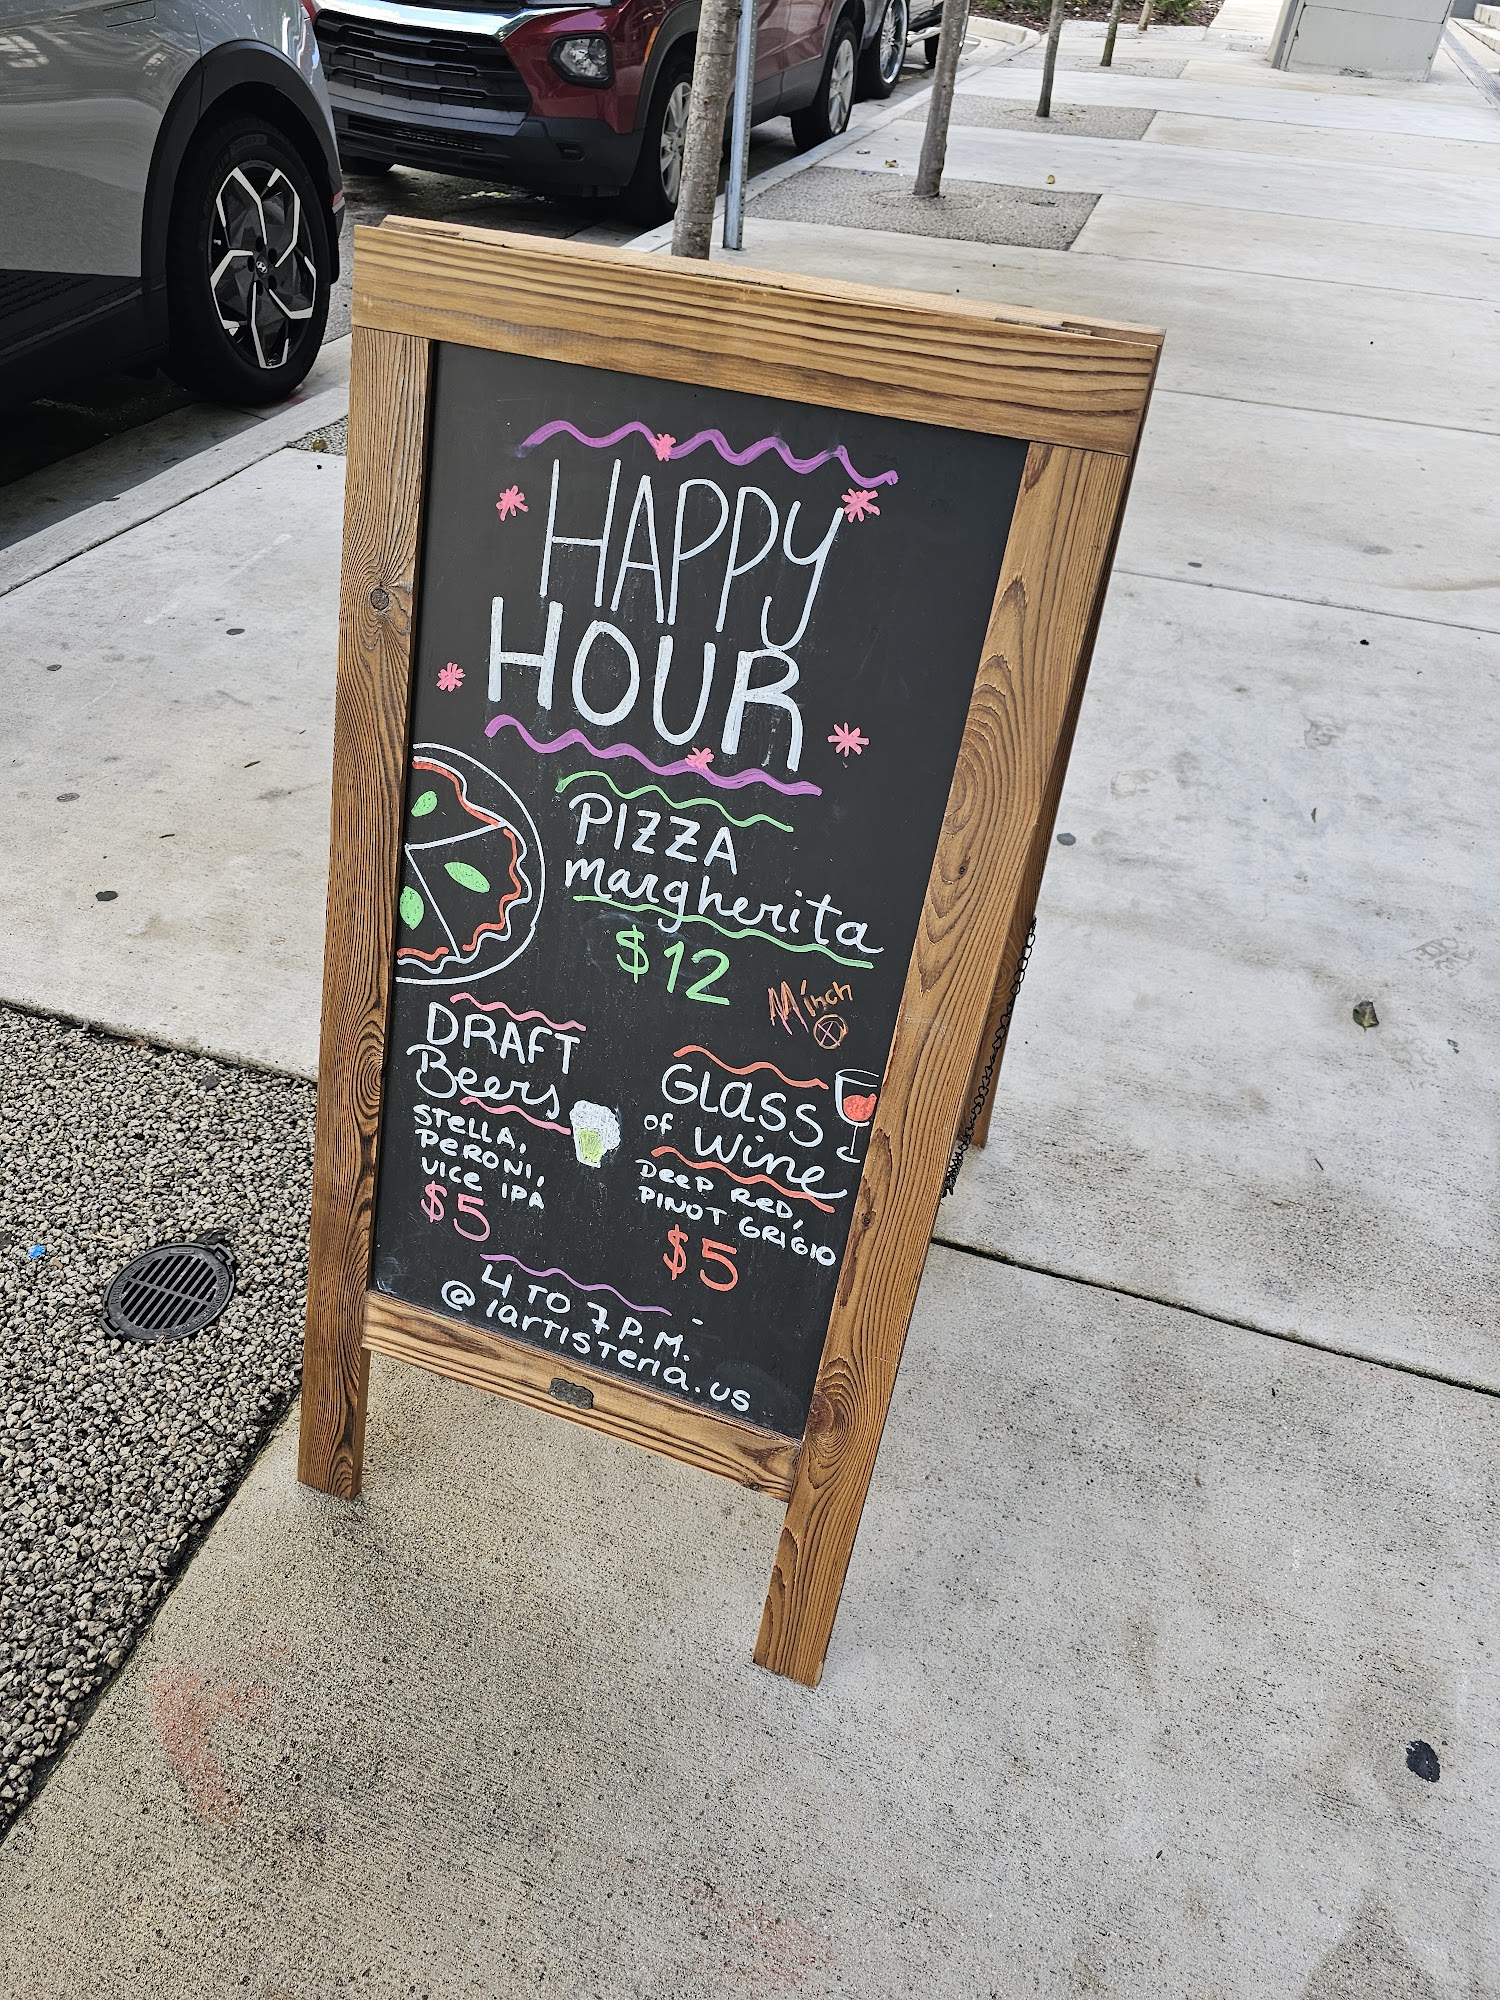 HAPPY
HOUR
PIZZA
margherita
$12
DRAFT
Beers
STELLA,
PERONI,
VICE IPA
$5
GLASS
OF wine
DEEP RED,
PINOT GRIGIO
$5
4 TO 7 P.M.
@lartisteria.us